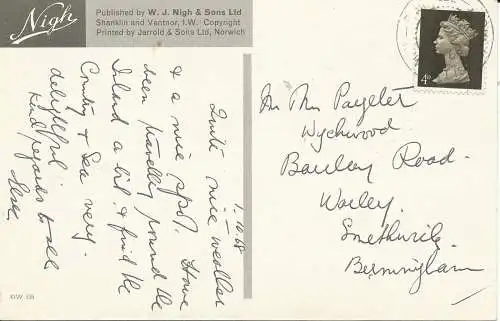 Nigh
Published by W. J. Nigh & Sons Ltd
Shanklin and Ventnor, I.W. Copyright
Printed by Jarrold & Sons Ltd, Norwich
1.10.68
Quite nice weather
& a nice spot. Have
been travelling round the
Island a bit & find the
Country & Sea very
delightful
Kind regards to all
4D
Mr Mrs Paylet
Wychwood
Barclay Road.
Warley.
Smethwick
Birmingham